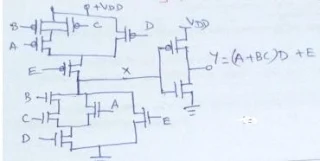 +VDD
B
C
A
D
VDD
E
X
Y=(A+BC)D + E
B
A
C
E
D